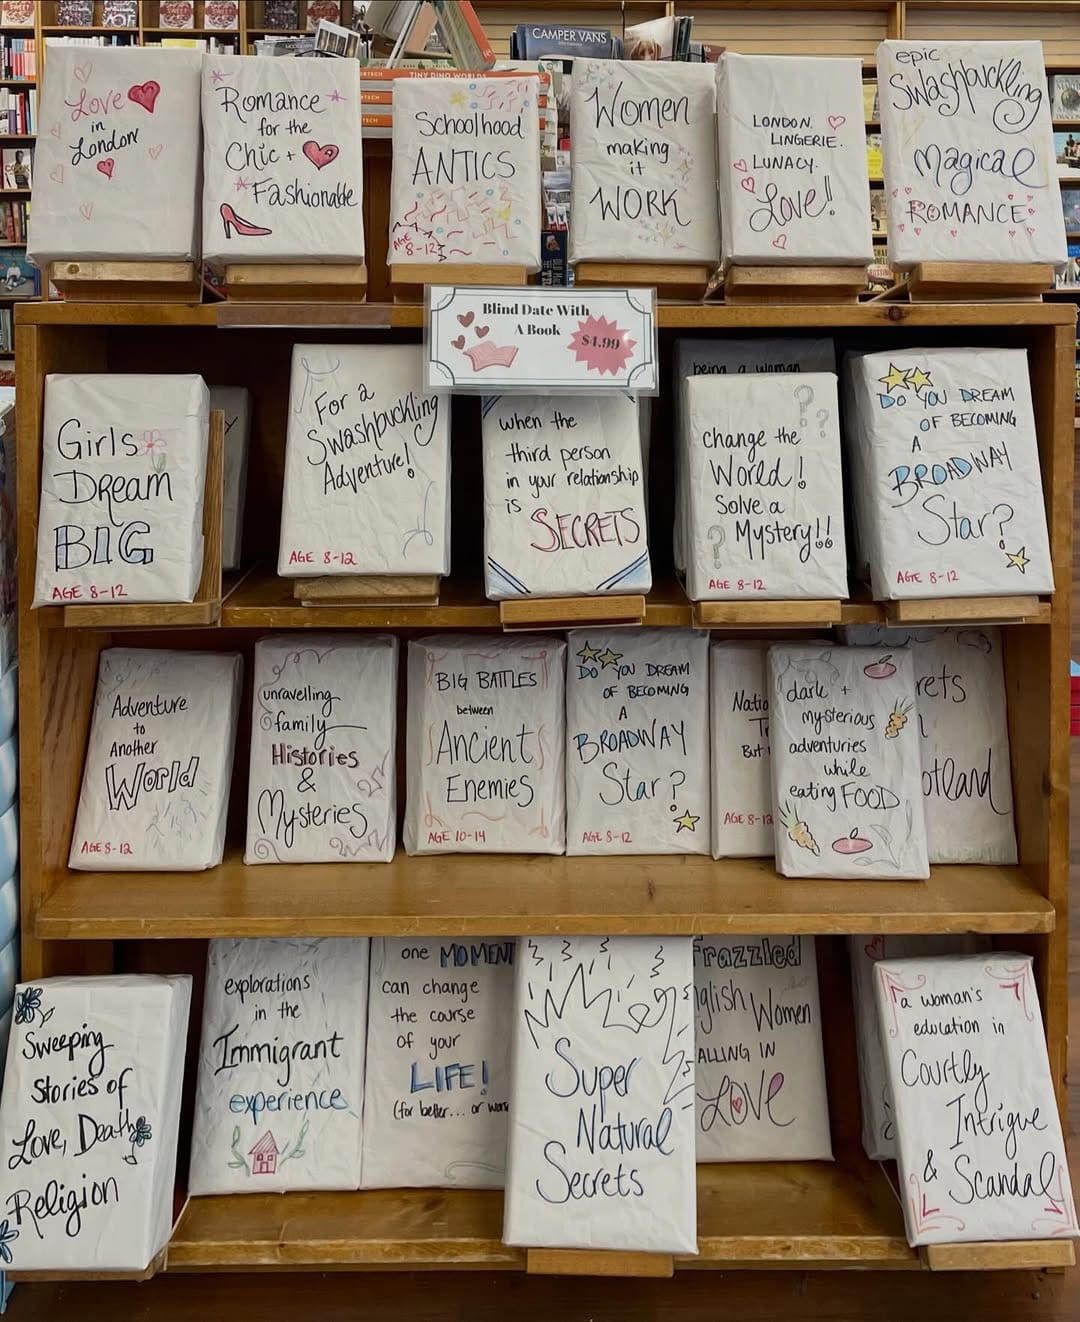 CAMPER VANS
TINY DINO WORLDS
Love
in
London
Romance
for the
Chic +
Fashionable
Schoolhood
ANTICS
AGE
8-12
Women
making
it
WORK
LONDON.
LINGERIE.
LUNACY.
Love!
epic
Swashbuckling
Magical
ROMANCE
Blind Date With
A Book
$4.99
Girls
DReam
BIG
AGE 8-12
For a
Swashbuckling
Adventure!
AGE 8-12
when the
third person
in your relationship
is
SECRETS
being a woman
change the
World!
Solve a
Mystery!!
AGE 8-12
DO YOU DREAM
OF BECOMING
A
BROADWAY
Star?
AGE 8-12
Adventure
to
Another
World
AGE 8-12
unravelling
family
Histories
&
Mysteries
BIG BATTLES
between
Ancient
Enemies
AGE 10-14
DO YOU DREAM
OF BECOMING
A
BROADWAY
Star?
AGE 8-12
Natio
Tr
But
AGE 8-12
dark +
mysterious
adventuries
while
eating FOOD
rets
otland
Sweeping
Stories of
Love, Death,
Religion
explorations
in the
Immigrant
experience
one MOMENT
can change
the course
of your
LIFE!
(for better... or wors
Super
Natural
Secrets
Frazzled
nglish Women
ALLING IN
LOVE
a woman's
education in
Courtly
Intrigue
& Scandal